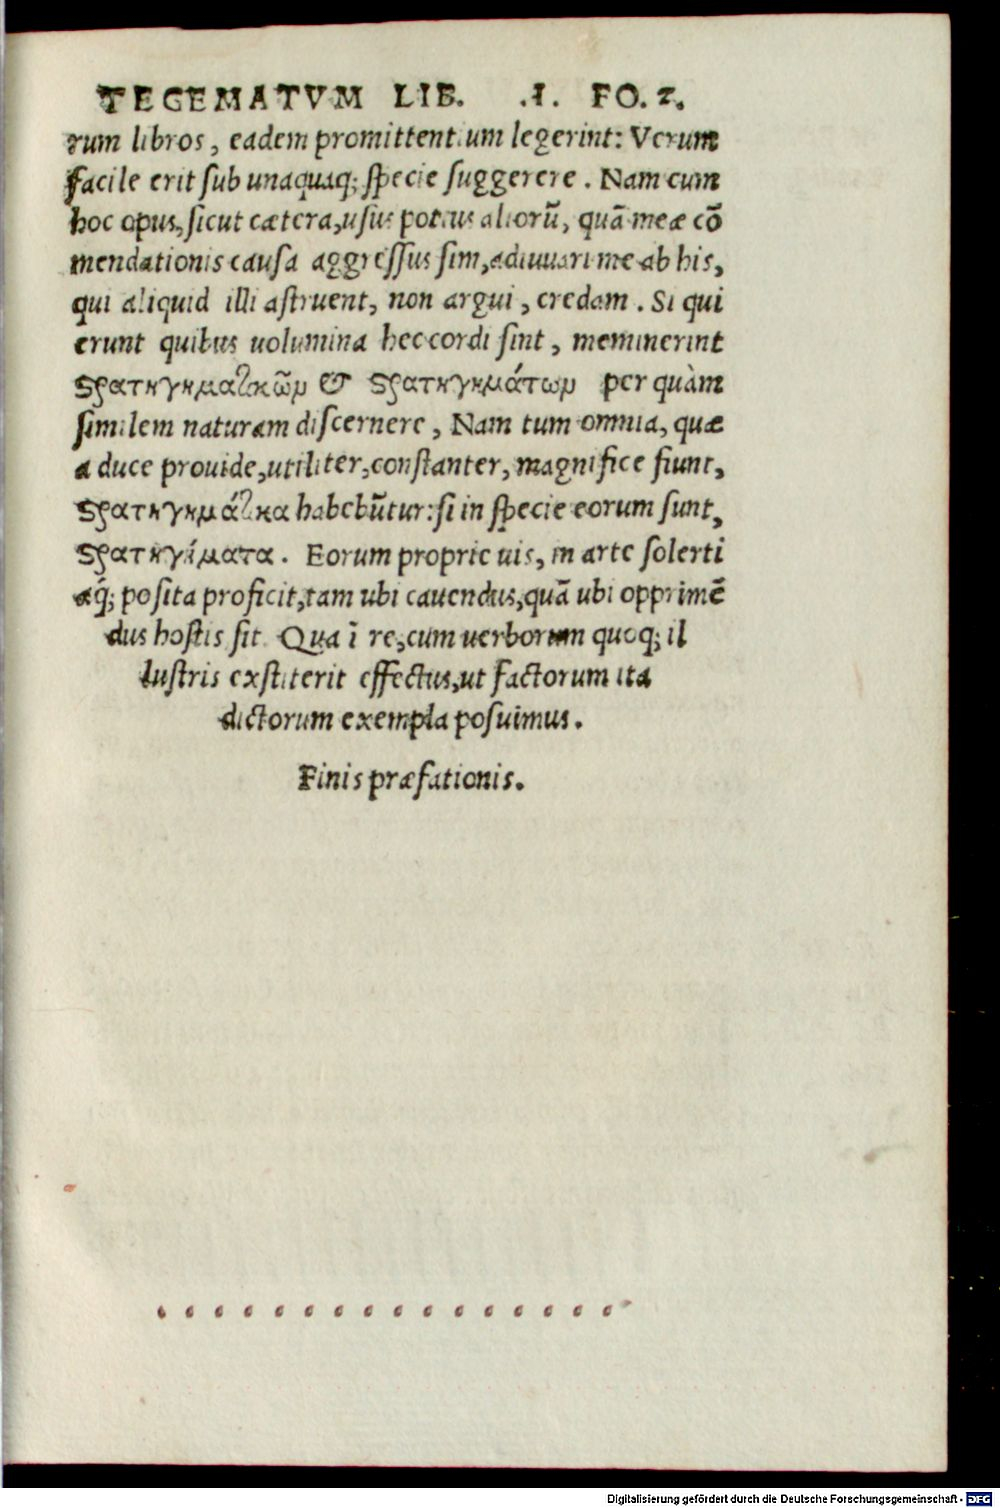 TEGEMATVM LIB. .I. FO. 2.
rum libros, eadem promittentium legerint: Verum
facile erit sub unaquaq; specie suggerere. Nam cum
hoc opus, sicut cætera, usus potius aliorũ, quã meæ cõ
mendationis causa aggressus sim, adiuuari me ab his,
qui aliquid illi astruent, non argui, credam. Si qui
erunt quibus uolumina hec cordi sint, meminerint
ϛρατηγηματικῶν & ϛρατηγημάτων per quàm
similem naturam discernere, Nam tum omnia, quæ
a duce prouide, utiliter, constanter, magnifice fiunt,
ϛρατηγημάτικα habebũtur: si in specie eorum sunt,
ϛρατηγήματα. Eorum proprie uis, in arte solerti
aq́; posita proficit, tam ubi cauendus, quã ubi opprimẽ
dus hostis sit. Qua ĩ re, cum uerborum quoq; il
lustris exstiterit effectus, ut factorum ita
dictorum exempla posuimus.
Finis præfationis.
Digitalisierung gefördert durch die Deutsche Forschungsgemeinschaft - DFG